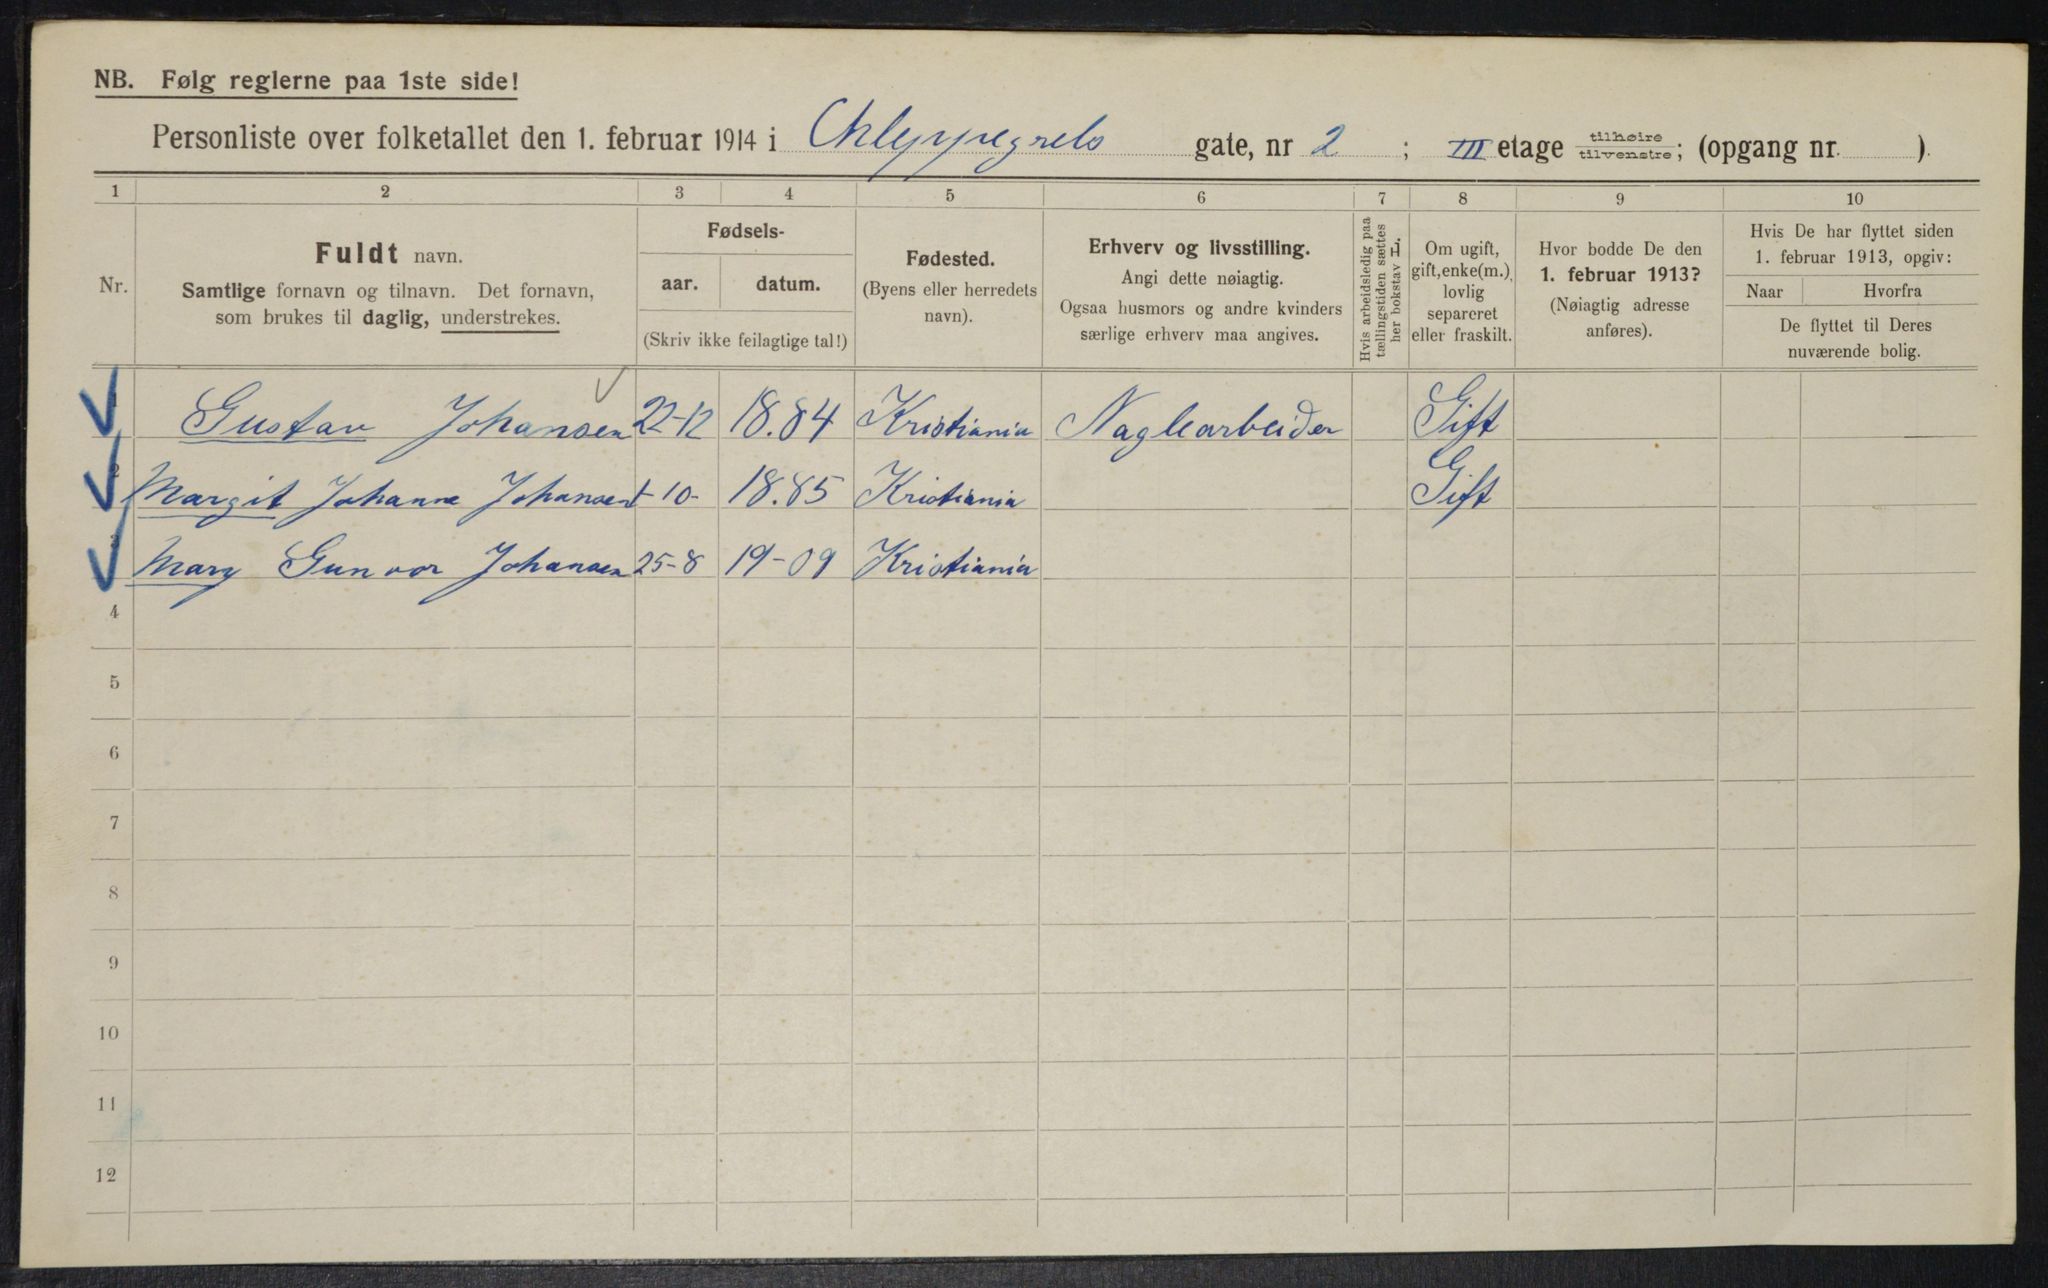 NB. Følg reglerne paa 1ste side!
Personliste over folketallet den 1. februar 1914 i Chleppegrels gate, nr 2 ; III etage tilhøire tilvenstre; (opgang nr. ).
1 2 3 4 5 6 7 8 9 10
Nr.
Fuldt navn.
Samtlige fornavn og tilnavn. Det fornavn,
som brukes til daglig, understrekes.
Fødsels-
aar. datum.
(Skriv ikke feilagtige tal!)
Fødested.
(Byens eller herredets
navn).
Erhverv og livsstilling.
Angi dette nøiagtig.
Ogsaa husmors og andre kvinders
særlige erhverv maa angives.
Hvis arbeidsledig paa
tællingstiden sættes
her bokstav L.
Om ugift,
gift, enke(m.),
lovlig
separeret
eller fraskilt.
Hvor bodde De den
1. februar 1913?
(Nøiagtig adresse
anføres).
Hvis De har flyttet siden
1. februar 1913, opgiv:
Naar Hvorfra
De flyttet til Deres
nuværende bolig.
1 Gustav Johansen 22-12 18.84 Kristiania Naglearbeider Gift
2 Margit Johanne Johansen 1-10- 18.85 Kristiania Gift
3 Mary Gunvor Johansen 25-8 19-09 Kristiania
4
5
6
7
8
9
10
11
12